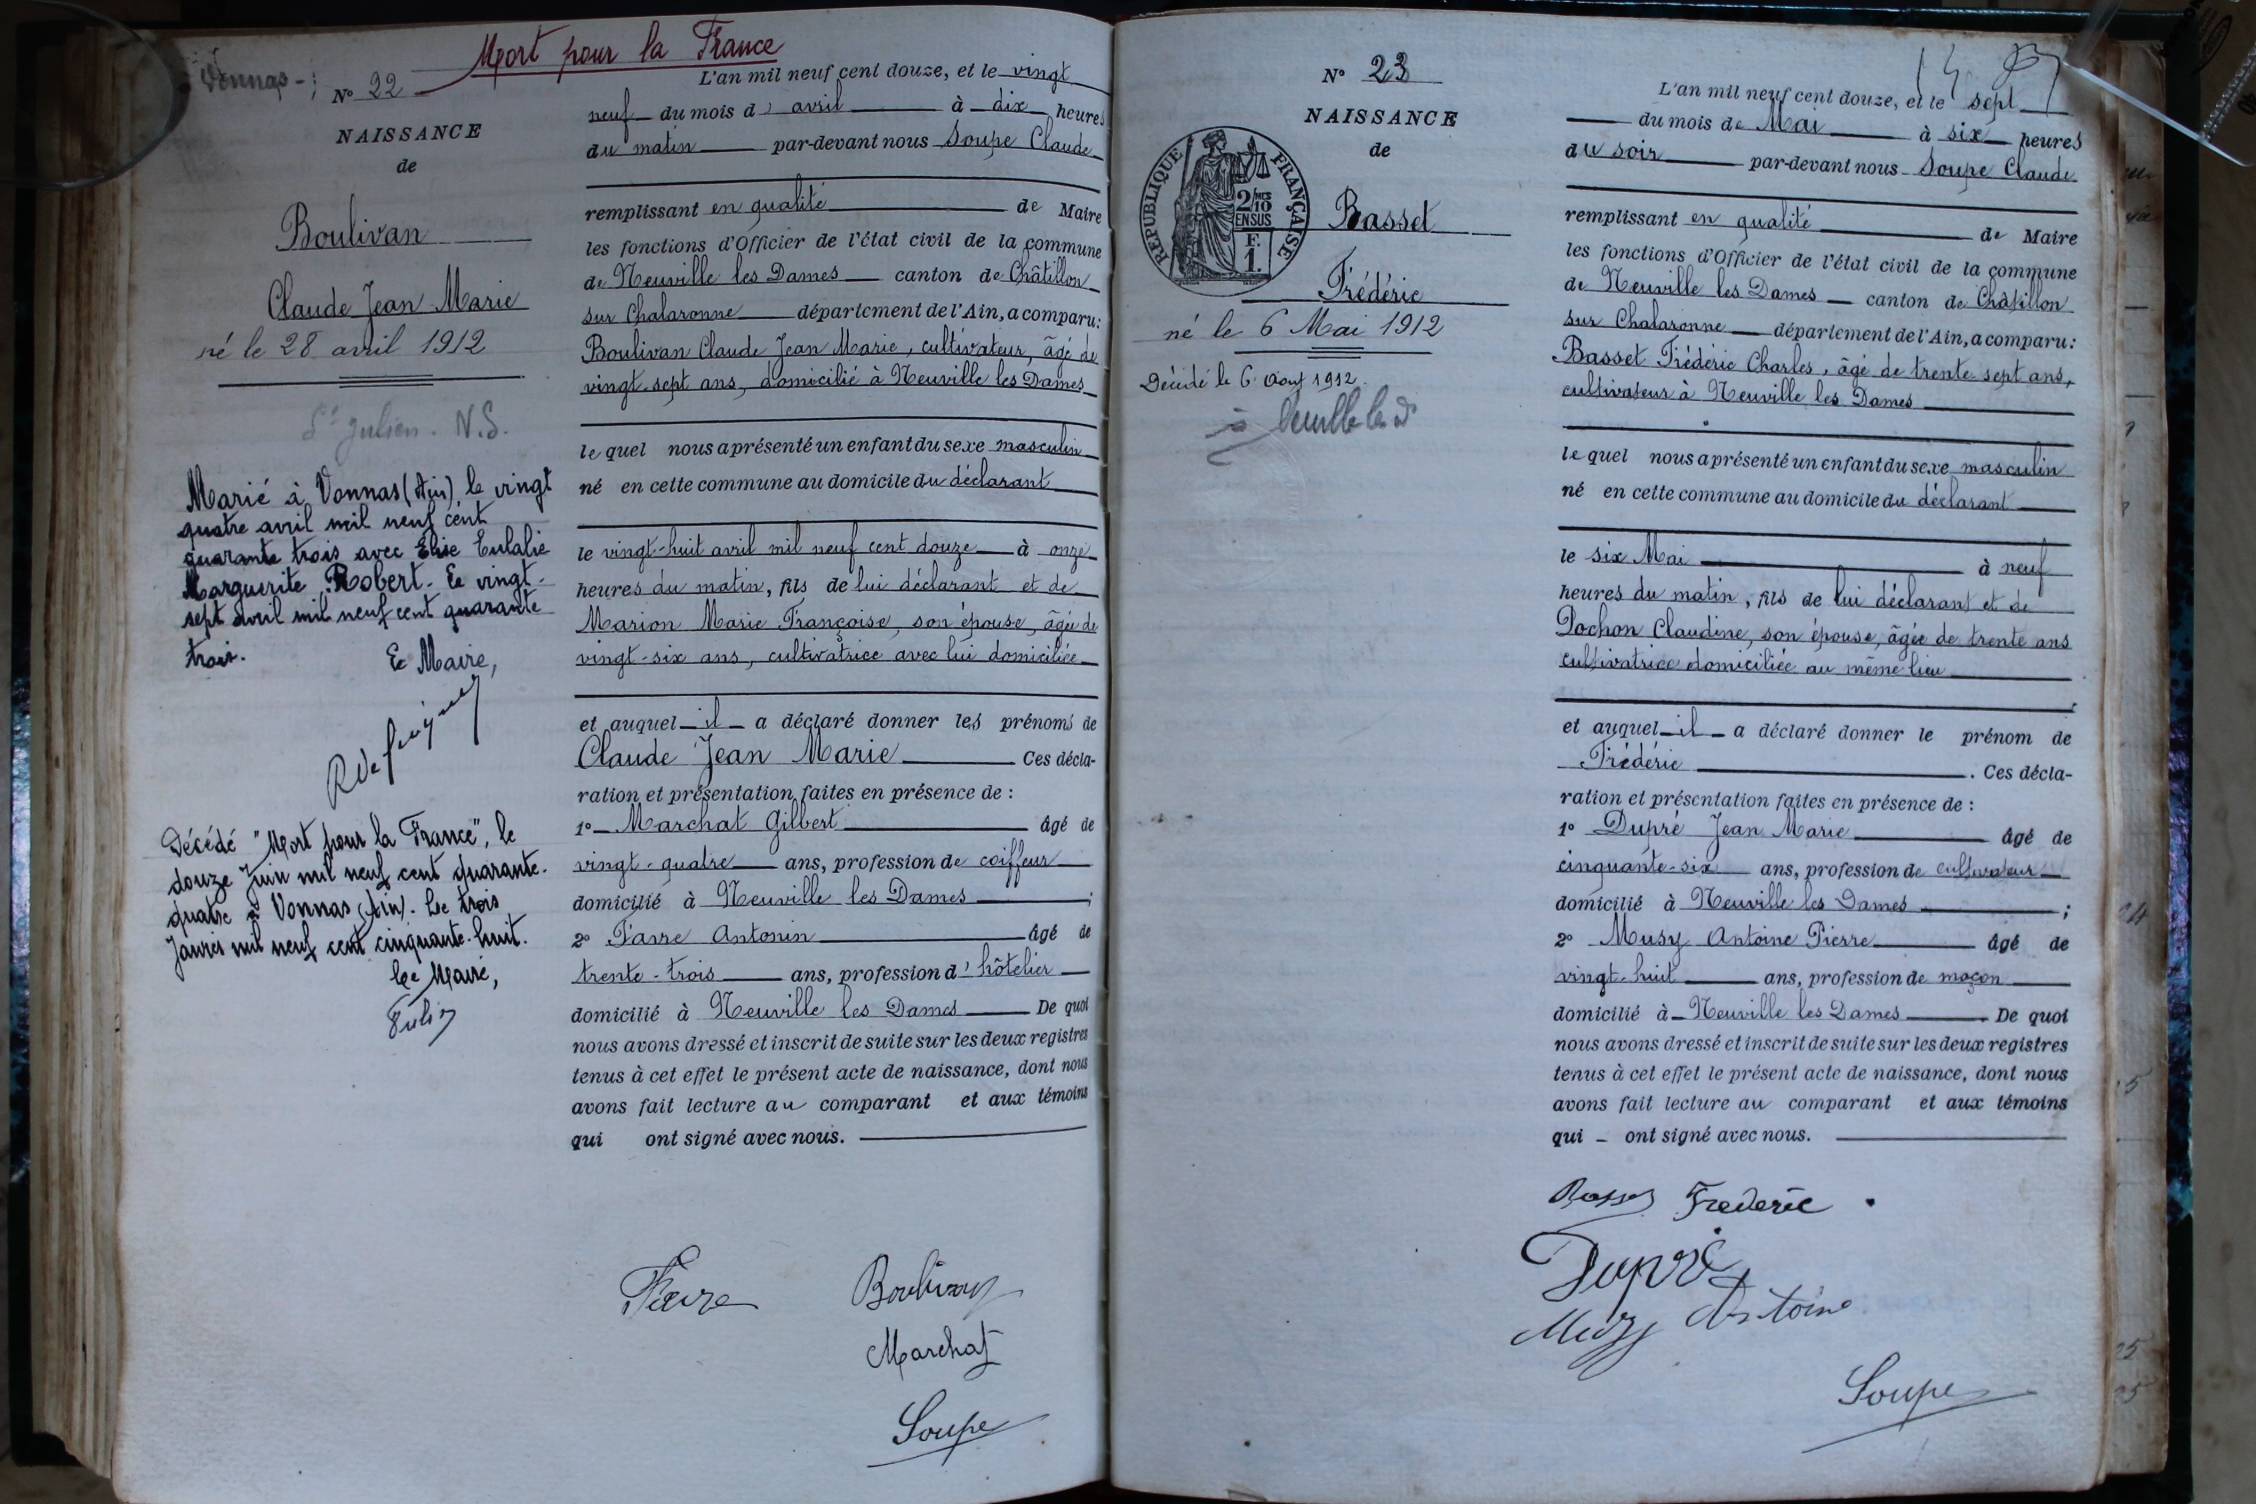 Vonnas
Mort pour la France
N° 22
NAISSANCE
de
Boulivan
Claude Jean Marie
né le 28 avril 1912
St Julien. N.S.
Marié à Vonnas (Ain) le vingt
quatre avril mil neuf cent
quarante trois avec Elise Eulalie
Marguerite Robert. Le vingt-
sept avril mil neuf cent quarante
trois.
Le Maire,
Décédé "Mort pour la France", le
douze Juin mil neuf cent quarante-
quatre à Vonnas (Ain). Le trois
Janvier mil neuf cent cinquante-huit.
Le Maire,
L'an mil neuf cent douze, et le vingt
neuf du mois d' avril à dix heures
du matin par-devant nous Soupe Claude
remplissant en qualité de Maire
les fonctions d'Officier de l'état civil de la commune
de Neuville les Dames canton de Châtillon
sur Chalaronne département de l'Ain, a comparu:
Boulivan Claude Jean Marie, cultivateur, âgé de
vingt-sept ans, domicilié à Neuville les Dames
le quel nous a présenté un enfant du sexe masculin
né en cette commune au domicile du déclarant
le vingt-huit avril mil neuf cent douze à onze
heures du matin, fils de lui déclarant et de
Marion Marie Françoise, son épouse, âgée de
vingt-six ans, cultivatrice avec lui domiciliée
et auquel il a déclaré donner les prénoms de
Claude Jean Marie Ces décla-
ration et présentation faites en présence de :
1° Marchat Gilbert âgé de
vingt-quatre ans, profession de coiffeur
domicilié à Neuville les Dames ;
2° Favre Antonin âgé de
trente-trois ans, profession d' hôtelier
domicilié à Neuville les Dames De quoi
nous avons dressé et inscrit de suite sur les deux registres
tenus à cet effet le présent acte de naissance, dont nous
avons fait lecture au comparant et aux témoins
qui ont signé avec nous.
Favre Boulivan
Marchat
Soupe
N° 23
NAISSANCE
de
RÉPUBLIQUE FRANÇAISE
2/10 MES
EN SUS
F.
1.
Basset
Frédéric
né le 6 Mai 1912
Décédé le 6 Aout 1912
à Neuville les D
L'an mil neuf cent douze, et le sept
du mois de Mai à six heures
du soir par-devant nous Soupe Claude
remplissant en qualité de Maire
les fonctions d'Officier de l'état civil de la commune
de Neuville les Dames canton de Châtillon
sur Chalaronne département de l'Ain, a comparu:
Basset Frédéric Charles, âgé de trente sept ans,
cultivateur à Neuville les Dames
le quel nous a présenté un enfant du sexe masculin
né en cette commune au domicile du déclarant
le six Mai à neuf
heures du matin, fils de lui déclarant et de
Pochon Claudine, son épouse, âgée de trente ans
cultivatrice domiciliée au même lieu
et auquel il a déclaré donner le prénom de
Frédéric . Ces décla-
ration et présentation faites en présence de :
1° Dupré Jean Marie âgé de
cinquante-six ans, profession de cultivateur
domicilié à Neuville les Dames ;
2° Musy Antoine Pierre âgé de
vingt-huit ans, profession de maçon
domicilié à Neuville les Dames De quoi
nous avons dressé et inscrit de suite sur les deux registres
tenus à cet effet le présent acte de naissance, dont nous
avons fait lecture au comparant et aux témoins
qui ont signé avec nous.
Basset Frederic
Dupré
Musy Antoine
Soupe